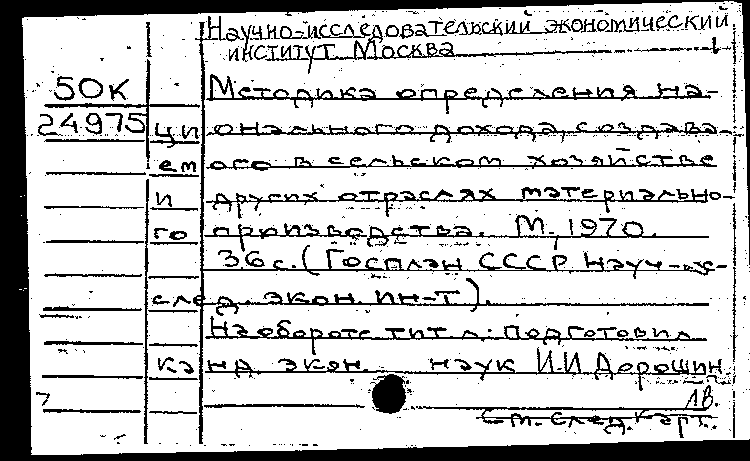 Научно-исследовательский экономический
институт. Москва 1
50к Методика определения на-
24975 ционального дохода, создава-
емого в сельском хозяйстве
и других отраслях материально-
го производства. М., 1970.
36 с. (Госплан СССР. Науч.-ис-
след. экон. ин-т).
На обороте тит л.: Подготовил
канд. экон. наук И.И Дорошин.
1в.
См. след. карт.